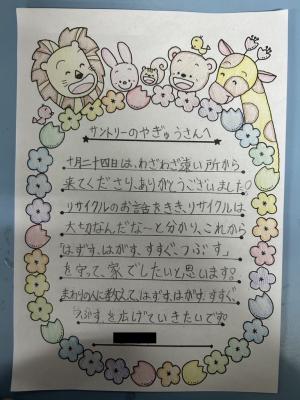 サントリーのやぎゅうさんへ
十月二十四日は、わざわざ遠い所から
来てくださり、ありがとうございました。
リサイクルのお話をきき、リサイクルは、
大切なんだな〜と分かり、これから
「はずす、はがす、すすぐ、つぶす」
を守って、家でしたいと思います。
まわりの人に教えて、はずす、はがす、すすぐ、
つぶす、を広げていきたいです。